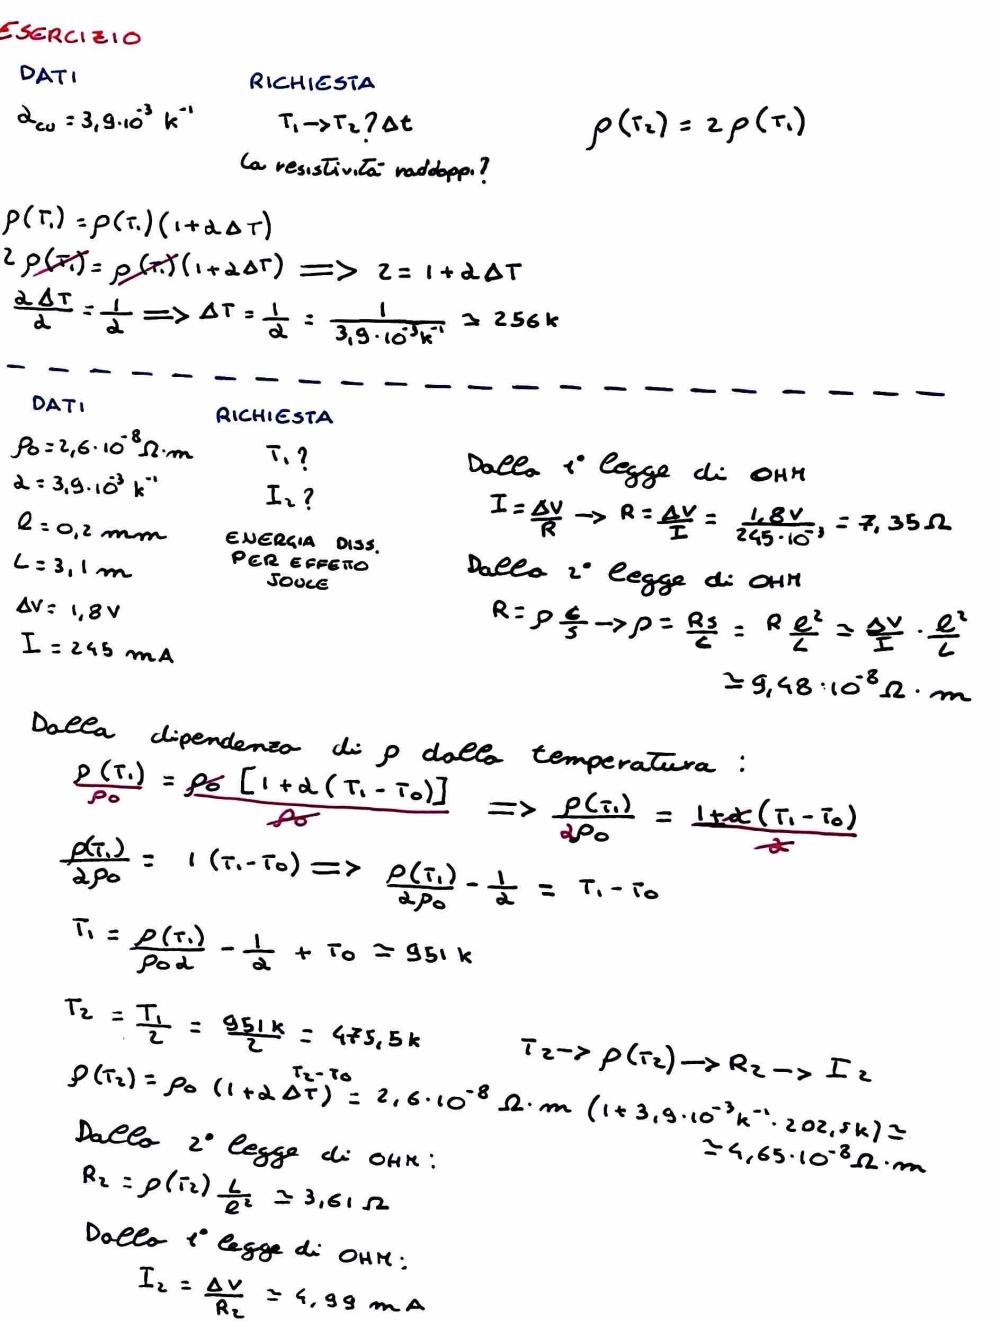 ESERCIZIO
DATI
RICHIESTA
α_cu = 3,9·10⁻³ k⁻¹
T₁→T₂? Δt
ρ(T₂) = 2ρ(T₁)
La resistività raddoppi?
ρ(T₁) = ρ(T₁)(1+αΔT)
2ρ(T₁) = ρ(T₁)(1+αΔT) => 2 = 1+αΔT
αΔT/α = 1/α => ΔT = 1/α = 1/(3,9·10⁻³k⁻¹) ≃ 256k
DATI
RICHIESTA
ρ₀ = 2,6·10⁻⁸ Ω·m
α = 3,9·10⁻³ k⁻¹
l = 0,2 mm
L = 3,1 m
ΔV = 1,8V
I = 245 mA
T₁?
I₂?
ENERGIA DISS.
PER EFFETO
JOULE
Dalla 1° legge di OHM
I = ΔV/R → R = ΔV/I = 1,8V/245·10⁻³ = 7,35Ω
Dalla 2° legge di OHM
R = ρ L/S → ρ = RS/L = R l²/L ≃ ΔV/I · l²/L
≃ 9,48·10⁻⁸ Ω·m
Dalla dipendenza di ρ dalla temperatura :
ρ(T₁)/ρ₀ = ρ₀ [1+α(T₁-T₀)]/ρ₀ => ρ(T₁)/αρ₀ = 1+α(T₁-T₀)/α
ρ(T₁)/αρ₀ = 1(T₁-T₀) => ρ(T₁)/αρ₀ - 1/α = T₁-T₀
T₁ = ρ(T₁)/ρ₀α - 1/α + T₀ ≃ 951k
T₂ = T₁/2 = 951k/2 = 475,5k
T₂→ρ(T₂)→R₂→I₂
T₂-T₀
ρ(T₂) = ρ₀ (1+αΔT) = 2,6·10⁻⁸ Ω·m (1+3,9·10⁻³k⁻¹·202,5k) ≃
≃ 4,65·10⁻⁸Ω·m
Dalla 2° legge di OHM:
R₂ = ρ(T₂) L/l² ≃ 3,61 Ω
Dalla 1° legge di OHM:
I₂ = ΔV/R₂ ≃ 4,99 mA